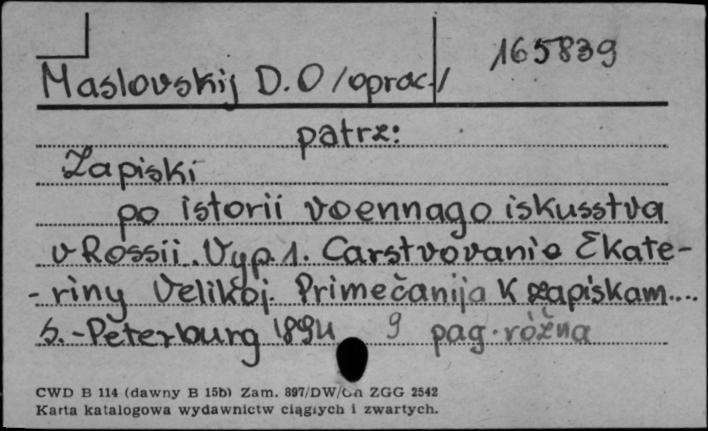 165839
Maslovskij D.O /oprac./
patrz:
Zapiski
po istorii voennago iskusstva
v Rossii. Vyp. 1. Carstvovanie Ekate-
-riny Velikoj. Primečanija K zapiskam...
S.-Peterburg 1894 9 pag. różna
CWD B 114 (dawny B 15b) Zam. 897/DW/ ZGG 2542
Karta katalogowa wydawnictw ciągłych i zwartych.